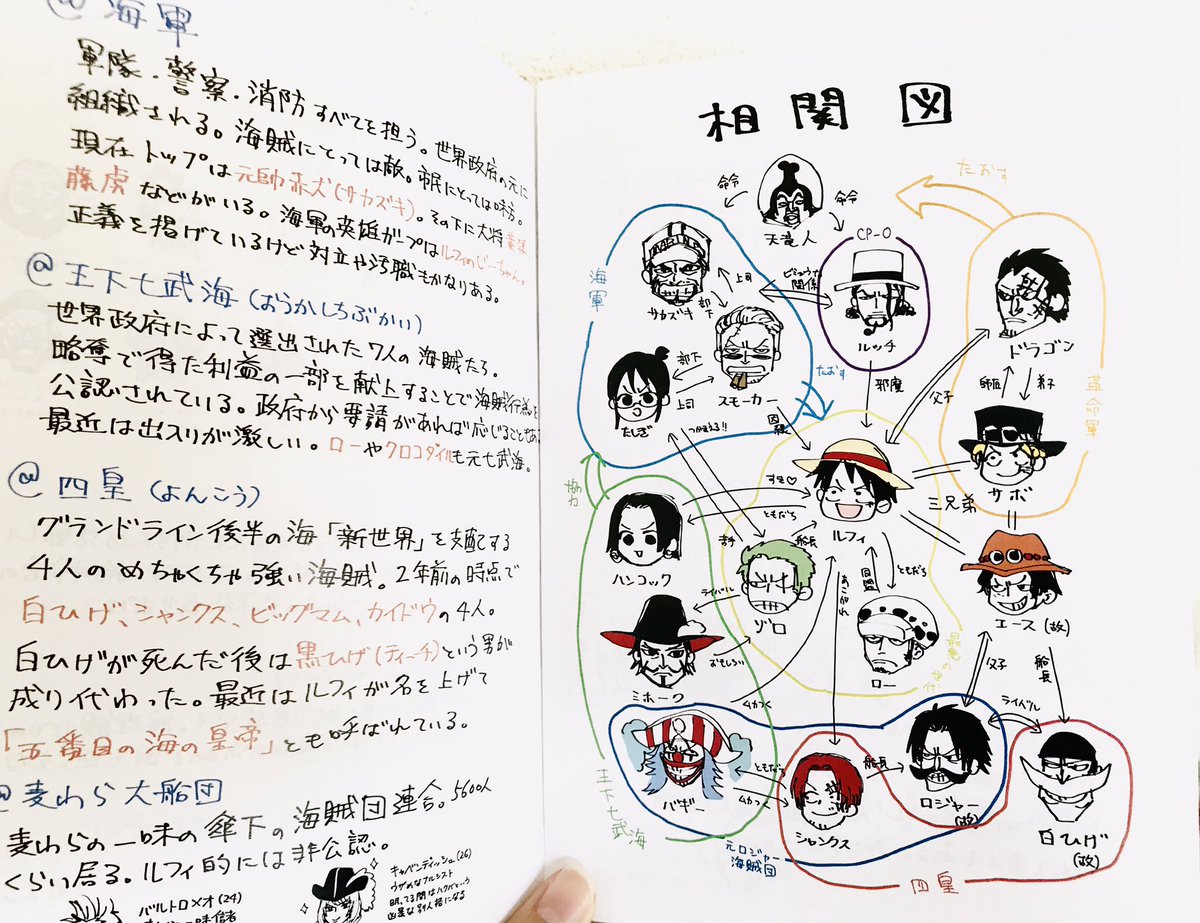 @ 海軍
軍隊・警察・消防すべてを担う。世界政府の元に
組織される。海賊にとっては敵。市民にとっては味方。
現在トップは元帥赤犬(サカズキ)。その下に大将
藤虎などがいる。海軍の英雄ガープはルフィのじーちゃん。
正義を掲げているけど対立や汚職もかなりある。
@ 王下七武海(おうかしちぶかい)
世界政府によって選出された7人の海賊たち。
略奪で得た利益の一部を献上することで海賊行為を
公認されている。政府から要請があれば応じることも
最近は出入りが激しい。ローやクロコダイルも元七武海。
@ 四皇(よんこう)
グランドライン後半の海「新世界」を支配する
4人のめちゃくちゃ強い海賊。2年前の時点で
白ひげ、シャンクス、ビッグマム、カイドウの4人。
白ひげが死んだ後は黒ひげ(ティーチ)という男が
成り代わった。最近はルフィが名を上げて
「五番目の海の皇帝」とも呼ばれている。
@麦わら大船団
麦わらの一味の傘下の海賊団連合。5600人
くらい居る。ルフィ的には非公認。
キャベンディッシュ(26)
バルトロメオ(24)
相関図
たおす
命令
命令
天竜人
CP-0
海軍
上司
部下
サカズキ
ビミョウな
関係
ルッチ
ドラゴン
部下
上司
スモーカー
たしぎ
たおす
邪魔
父子
師匠
弟子
革命軍
つかまえる!!
因縁
サボ
協力
すき♡
三兄弟
ハンコック
ともだち
ルフィ
苦手
船長
エース(故)
ライバル
ゾロ
あこがれ
同盟
ともだち
ロー
最悪の世代
ミホーク
おもしろい
父子
船長
ムカつく
ライバル
バギー
ともだち
ムカつく
船長
シャンクス
ロジャー
(故)
白ひげ
(故)
王下七武海
元ロジャー
海賊団
四皇